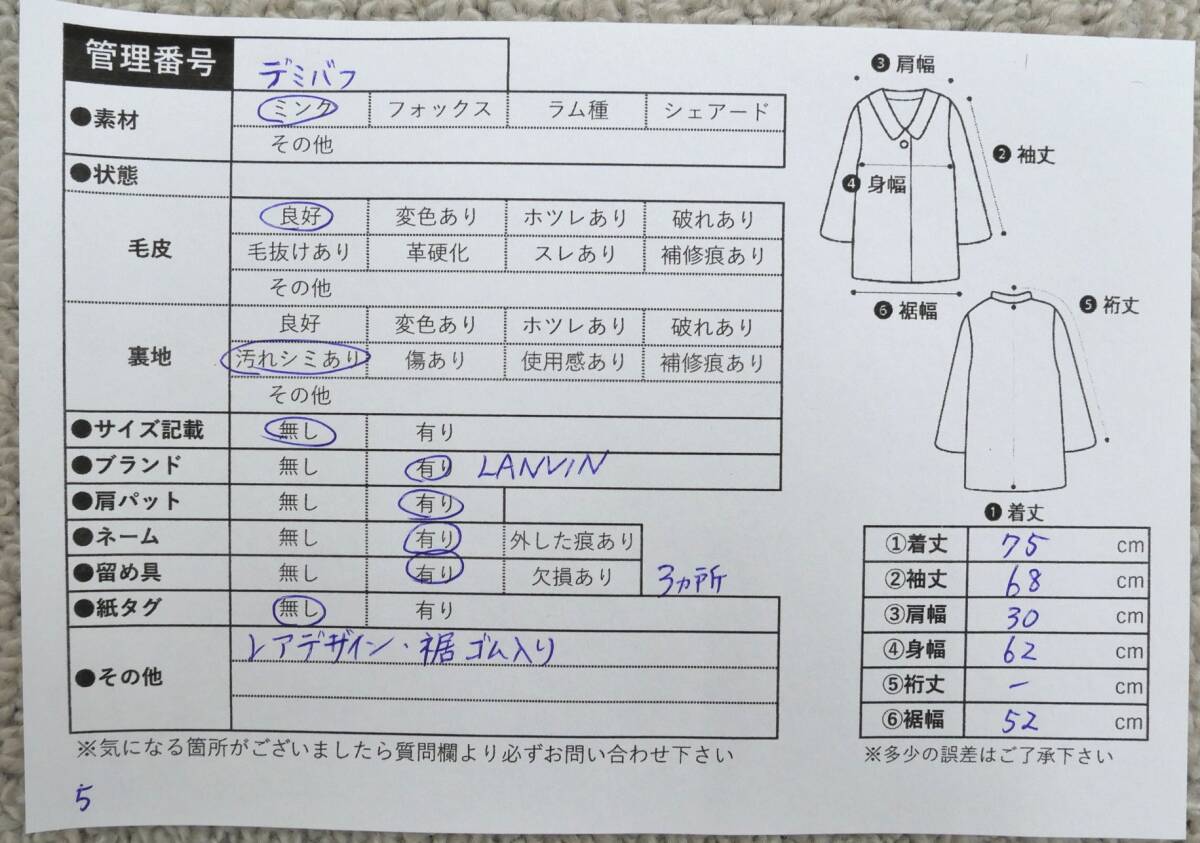 管理番号
デミバフ
●素材 ミンク フォックス ラム種 シェアード
その他
●状態
毛皮 良好 変色あり ホツレあり 破れあり
毛抜けあり 革硬化 スレあり 補修痕あり
その他
裏地 良好 変色あり ホツレあり 破れあり
汚れシミあり 傷あり 使用感あり 補修痕あり
その他
●サイズ記載 無し 有り
●ブランド 無し 有り LANVIN
●肩パット 無し 有り
●ネーム 無し 有り 外した痕あり
●留め具 無し 有り 欠損あり 3ヵ所
●紙タグ 無し 有り
●その他 レアデザイン・裾ゴム入り
※気になる箇所がございましたら質問欄より必ずお問い合わせ下さい
5
❸肩幅
❷袖丈
❹身幅
❻裾幅
❺裄丈
❶着丈
①着丈 75 cm
②袖丈 68 cm
③肩幅 30 cm
④身幅 62 cm
⑤裄丈 - cm
⑥裾幅 52 cm
※多少の誤差はご了承下さい